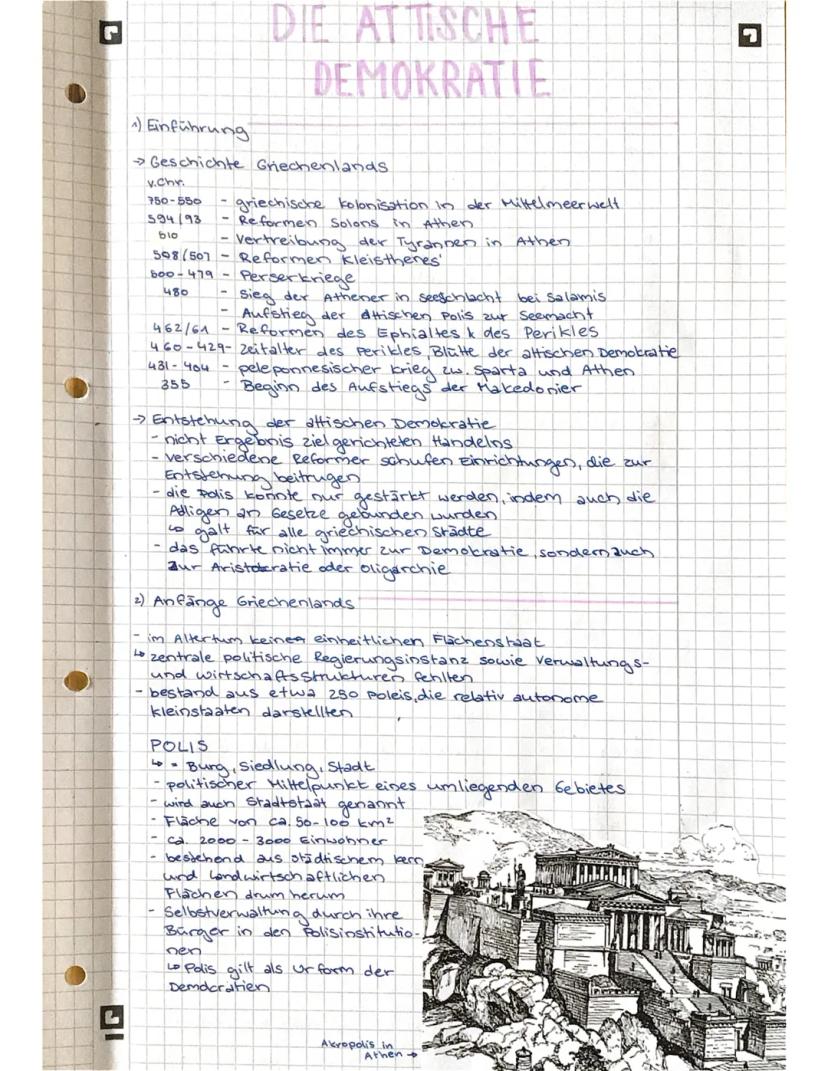 DIE ATTISCHE
DEMOKRATIE
1) Einführung
→ Geschichte Griechenlands
v.Chr.
750-550 - griechische Kolonisation in der Mittelmeerwelt
594/93 - Reformen Solons in Athen
510 - Vertreibung der Tyrannen in Athen
508/507 - Reformen Kleisthenes'
500-479 - Perserkriege
480 - Sieg der Athener in Seeschlacht bei Salamis
- Aufstieg der attischen Polis zur Seemacht
462/61 - Reformen des Ephialtes & des Perikles
460-429- Zeitalter des Perikles, Blüte der attischen Demokratie
431-404 - peleponnesischer Krieg zw. Sparta und Athen
355 - Beginn des Aufstiegs der Makedonier
→ Entstehung der attischen Demokratie
- nicht Ergebnis zielgerichteten Handelns
- verschiedene Reformer schufen Einrichtungen, die zur
Entstehung beitrugen
- die Polis konnte nur gestärkt werden, indem auch die
Adligen an Gesetze gebunden wurden
↳ galt für alle griechischen Städte
- das führte nicht immer zur Demokratie, sondern auch
zur Aristokratie oder Oligarchie
2) Anfänge Griechenlands
- im Altertum keinen einheitlichen Flächenstaat
↳ zentrale politische Regierungsinstanz sowie Verwaltungs-
und Wirtschaftsstrukturen fehlten
- bestand aus etwa 250 Poleis, die relativ autonome
Kleinstaaten darstellten
POLIS
↳ = Burg, Siedlung, Stadt
- politischer Mittelpunkt eines umliegenden Gebietes
- wird auch Stadtstaat genannt
- Fläche von ca. 50-100 km²
- ca. 2000 - 3000 Einwohner
- bestehend aus städtischem Kern
und landwirtschaftlichen
Flächen drum herum
- Selbstverwaltung durch ihre
Bürger in den Polisinstitutio-
nen
↳ Polis gilt als Urform der
Demokratien
Akropolis in
Athen →